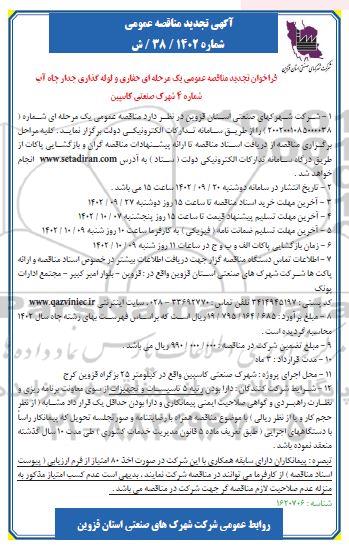 آگهی تجدید مناقصه عمومی
شماره ۱۴۰۲ / ۳۸ / ش
شرکت شهرکهای صنعتی استان قزوین
فراخوان تجدید مناقصه عمومی یک مرحله ای حفاری و لوله گذاری جدار چاه آب
شماره ۴ شهرک صنعتی کاسپین
۱ – شرکت شهرکهای صنعتی استان قزوین در نظر دارد مناقصه عمومی یک مرحله ای شماره (
۲۰۰۲۰۰۱۰۸۵۰۰۰۰۳۸ ) را از طریق سامانه تدارکات الکترونیکی دولت برگزار نماید . کلیه مراحل
برگزاری مناقصه از دریافت اسناد مناقصه تا ارائه پیشنهادات مناقصه گران و بازگشایی پاکات از
طریق درگاه سامانه تدارکات الکترونیکی دولت ( ستاد ) به آدرس www.setadiran.com انجام
خواهد شد .
۲ – تاریخ انتشار در سامانه دوشنبه ۲۰ / ۰۹ / ۱۴۰۲ ساعت ۱۵ می باشد .
۳ – آخرین مهلت خرید اسناد مناقصه تا ساعت ۱۵ روز دوشنبه ۲۷ / ۰۹ / ۱۴۰۲
۴ – آخرین مهلت تسلیم پیشنهاد قیمت تا ساعت ۱۵ روز پنجشنبه ۰۷ / ۱۰ / ۱۴۰۲
۵ – آخرین مهلت تسلیم ضمانت نامه ( فیزیکی ) به کارفرما ساعت ۱۰ روز شنبه ۰۹ / ۱۰ / ۱۴۰۲
۶ – زمان بازگشایی پاکات الف و ب و ج در ساعات ۱۱ روز شنبه ۰۹ / ۱۰ / ۱۴۰۲
۷ – اطلاعات تماس دستگاه مناقصه گزار جهت دریافت اطلاعات بیشتر در خصوص اسناد مناقصه و ارائه
پاکت ها شرکت شهرک های صنعتی استان قزوین واقع در : قزوین – بلوار امیر کبیر – مجتمع ادارات
پونک
کد پستی : ۳۴۱۴۹۴۵۱۹۷ تلفن تماس : ۳۳۶۹۲۷۷۰ – ۰۲۸ ، سایت اینترنتی www.qazviniec.ir
۸ – مبلغ برآورد : ۶۸۵ / ۱۶۴ / ۷۹۵ / ۱۹ ریال است که براساس فهرست بهای رشته چاه سال ۱۴۰۲
محاسبه گردیده است .
۹ – مبلغ تضمین شرکت در مناقصه : ۰۰۰ / ۰۰۰ / ۹۹۰ ریال می باشد .
۱۰ – مدت قرارداد : ۳ ماه
۱۱ – محل اجرای پروژه : شهرک صنعتی کاسپین واقع در کیلومتر ۲۵ بزرگراه قزوین کرج
۱۲ – شرایط شرکت کنندگان : دارا بودن رتبه ۵ تاسیسات و تجهیزات از سوی معاونت برنامه ریزی و
نظارت راهبردی و گواهی صلاحیت ایمنی پیمانکاری و دارا بودن حداقل یک قرارداد مشابه ( از نظر
حجم کار و یا از نظر ریالی ) با موضوع مناقصه همراه با رضایتنامه و صورتجلسه تحویل که پیمانکار راساً
با دستگاههای اجرایی ( طبق تعریف ماده ۵ قانون مدیریت خدمات کشوری ) طی مدت ۱۰ سال گذشته
منعقد نموده باشد .
تبصره : پیمانکاران دارای سابقه همکاری با این شرکت در صورت اخذ ۸۰ امتیاز از فرم ارزیابی ( پیوست
اسناد مناقصه ) از کارفرما می توانند در مناقصه شرکت نمایند ، بدیهی است عدم کسب امتیاز مذکور به
منزله عدم صلاحیت لازم مناقصه گر جهت شرکت در مناقصه می باشد .
شناسه : ۱۶۲۰۷۰۶
روابط عمومی شرکت شهرک های صنعتی استان قزوین